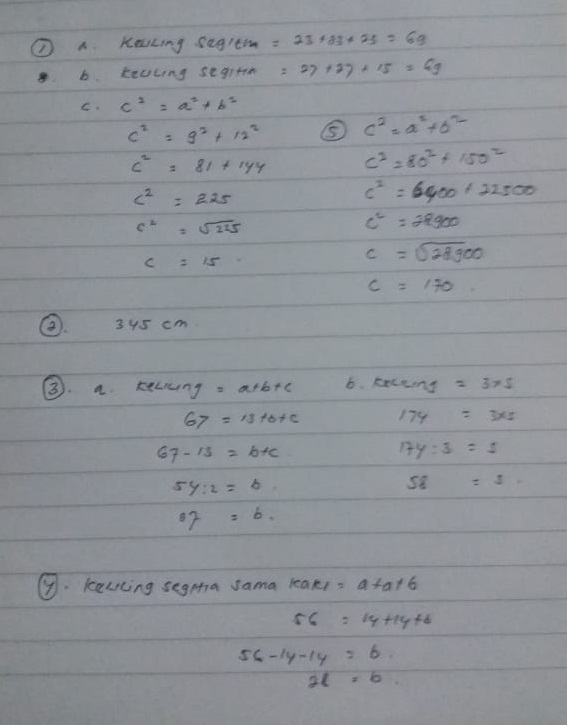 ① a. Keliling segitiga = 23+23+23 = 69
b. Keliling segitiga = 27+27+15 = 69
c. c² = a²+b²
c² = 9²+12²
c² = 81+144
c² = 225
c² = √225
c = 15
⑤ c² = a²+b²
c² = 80²+150²
c² = 6400+22500
c² = 28900
c = √28900
c = 170
②. 345 cm
③. a. Keliling = a+b+c
67 = 13+b+c
67-13 = b+c
54:2 = b
27 = b.
b. Keliling = 3×s
174 = 3×s
174:3 = s
58 = s.
④. Keliling segitiga sama kaki = a+a+b
56 = 14+14+b
56-14-14 = b.
28 = b.